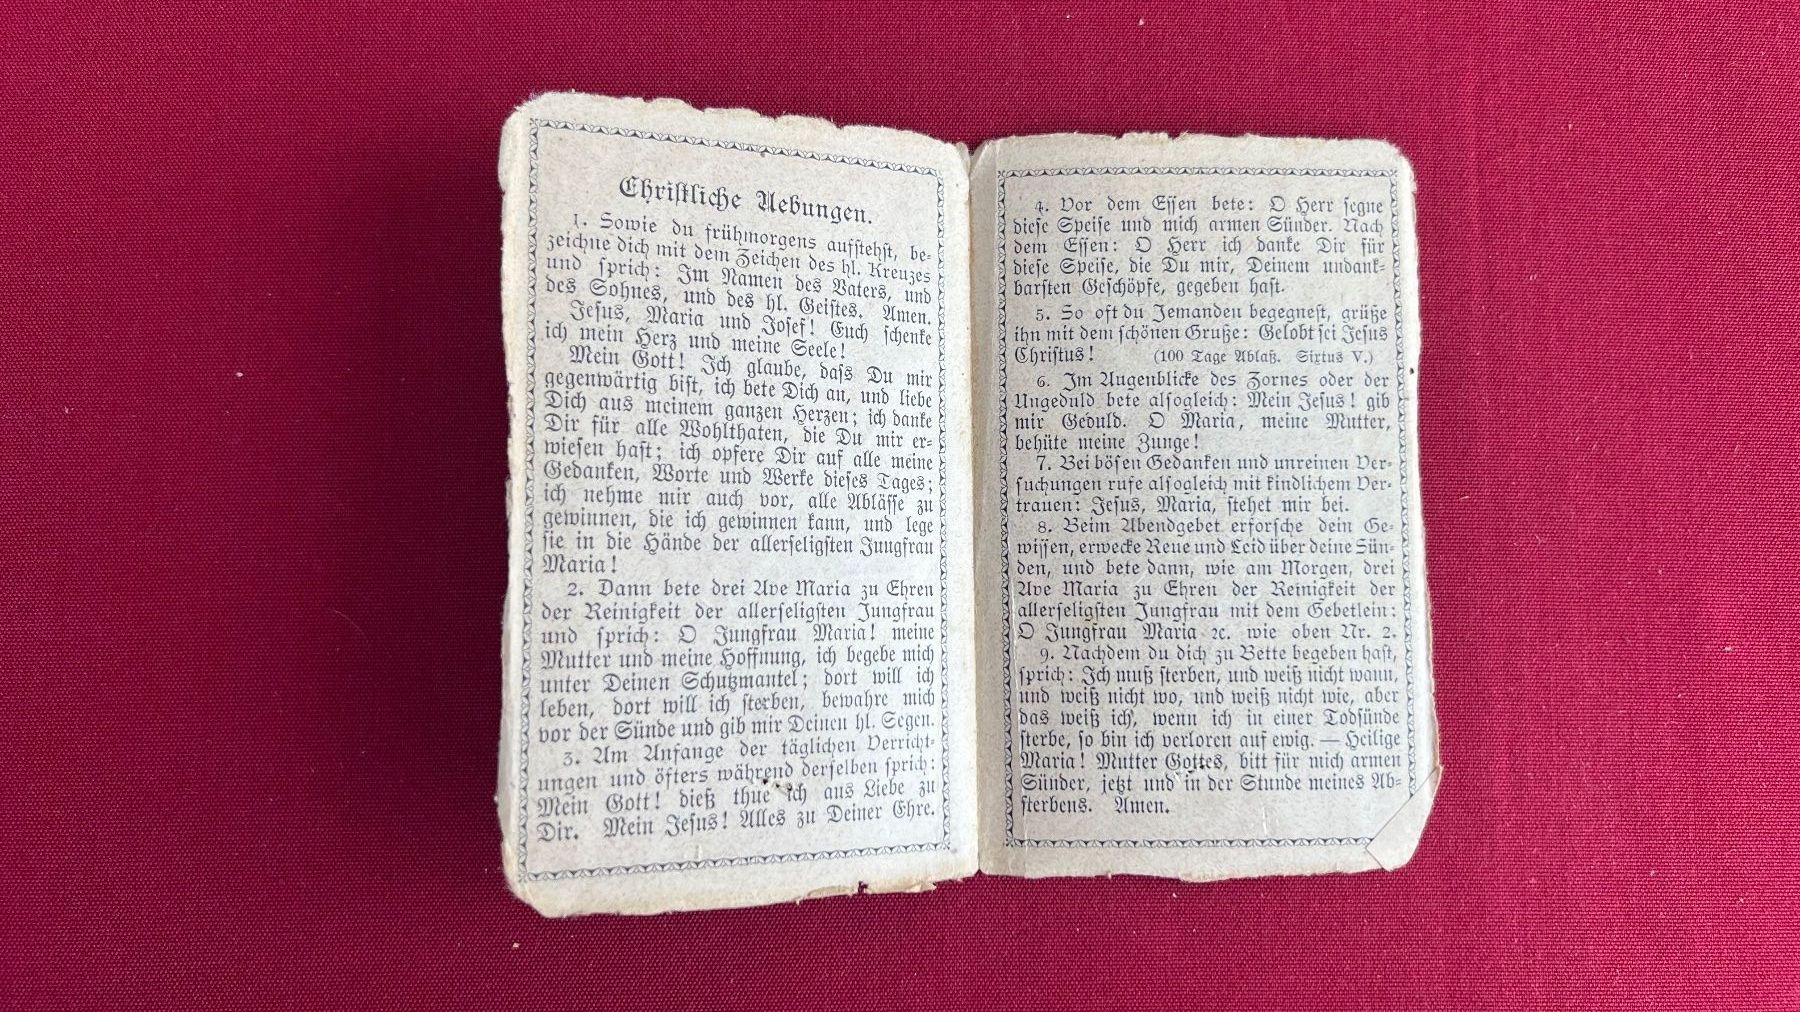 Christliche Uebungen.
1. Sowie du frühmorgens aufstehst, be-
zeichne dich mit dem Zeichen des hl. Kreuzes
und sprich: Im Namen des Vaters, und
des Sohnes, und des hl. Geistes. Amen.
Jesus, Maria und Josef! Euch schenke
ich mein Herz und meine Seele!
Mein Gott! Ich glaube, dass Du mir
gegenwärtig bist, ich bete Dich an, und liebe
Dich aus meinem ganzen Herzen; ich danke
Dir für alle Wohlthaten, die Du mir er-
wiesen hast; ich opfere Dir auf alle meine
Gedanken, Worte und Werke dieses Tages;
ich nehme mir auch vor, alle Ablässe zu
gewinnen, die ich gewinnen kann, und lege
sie in die Hände der allerseligsten Jungfrau
Maria!
2. Dann bete drei Ave Maria zu Ehren
der Reinigkeit der allerseligsten Jungfrau
und sprich: O Jungfrau Maria! meine
Mutter und meine Hoffnung, ich begebe mich
unter Deinen Schutzmantel; dort will ich
leben, dort will ich sterben, bewahre mich
vor der Sünde und gib mir Deinen hl. Segen.
3. Am Anfange der täglichen Verricht-
ungen und öfters während derselben sprich:
Mein Gott! dieß thue ich aus Liebe zu
Dir. Mein Jesus! Alles zu Deiner Ehre.
4. Vor dem Essen bete: O Herr segne
diese Speise und mich armen Sünder. Nach
dem Essen: O Herr ich danke Dir für
diese Speise, die Du mir, Deinem undank-
barsten Geschöpfe, gegeben hast.
5. So oft du Jemanden begegnest, grüße
ihn mit dem schönen Gruße: Gelobt sei Jesus
Christus! (100 Tage Ablaß. Sixtus V.)
6. Im Augenblicke des Zornes oder der
Ungeduld bete alsogleich: Mein Jesus! gib
mir Geduld. O Maria, meine Mutter,
behüte meine Zunge!
7. Bei bösen Gedanken und unreinen Ver-
suchungen rufe alsogleich mit kindlichem Ver-
trauen: Jesus, Maria, stehet mir bei.
8. Beim Abendgebet erforsche dein Ge-
wissen, erwecke Reue und Leid über deine Sün-
den, und bete dann, wie am Morgen, drei
Ave Maria zu Ehren der Reinigkeit der
allerseligsten Jungfrau mit dem Gebetlein:
O Jungfrau Maria ꝛc. wie oben Nr. 2.
9. Nachdem du dich zu Bette begeben hast,
sprich: Ich muß sterben, und weiß nicht wann,
und weiß nicht wo, und weiß nicht wie, aber
das weiß ich, wenn ich in einer Todsünde
sterbe, so bin ich verloren auf ewig. — Heilige
Maria! Mutter Gottes, bitt für mich armen
Sünder, jetzt und in der Stunde meines Ab-
sterbens. Amen.